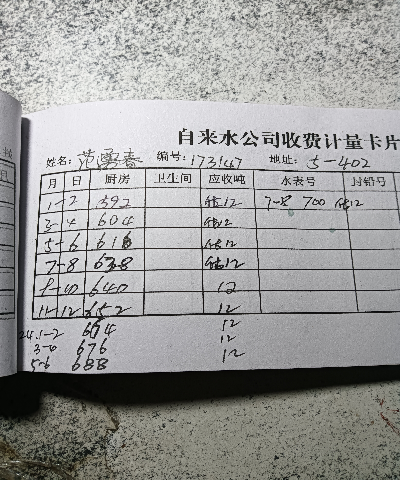 自来水公司收费计量卡片
姓名: 范 春 编号: 1731 地址: 5-402
月 日 厨房 卫生间 应收吨 水表号 封铅号
1-2 592 12 7-8 700 12
3-4 604 12
5-6 616 12
7-8 628 12
9-10 640 12
11-12 652 12
24.1-2 664 12
3-4 676 12
5-6 688 12